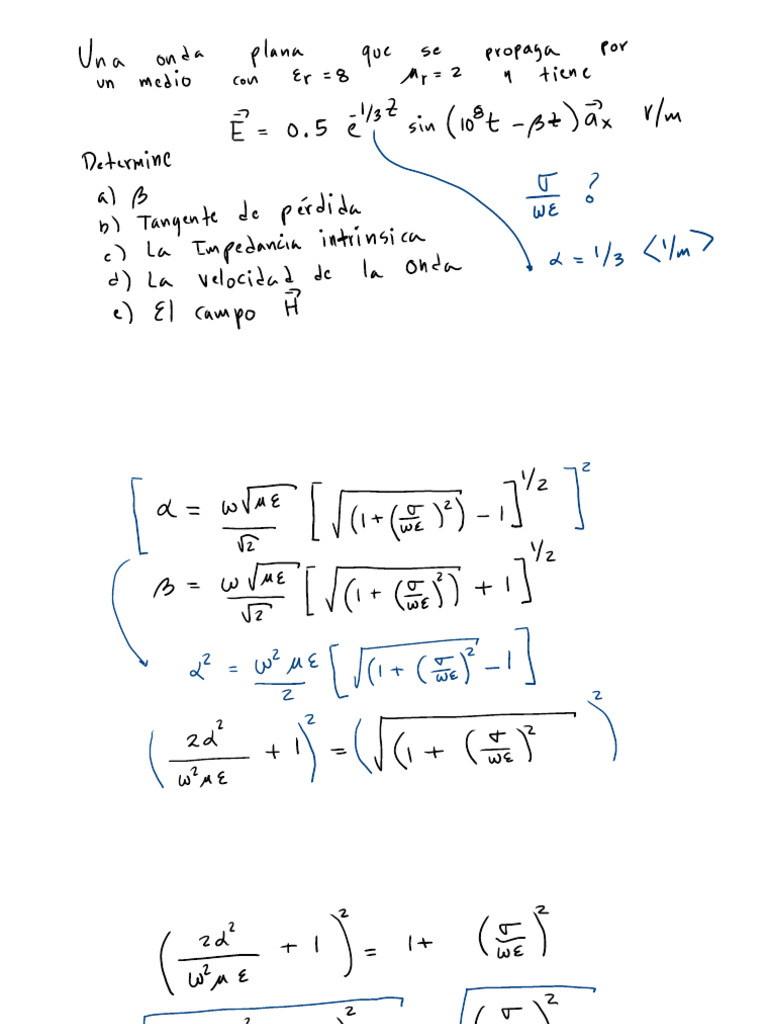 Una onda plana que se propaga por
un medio con εr = 8 μr = 2 y tiene
E⃗ = 0.5 e^(-1/3 z) sin(10^8 t - βz) a⃗x V/m
Determine
a) β
b) Tangente de pérdida
c) La Impedancia intrínsica
d) La velocidad de la onda
e) El campo H⃗
σ/ωε ?
α = 1/3 <1/m>
[ α = ω√με/√2 [ √(1+(σ/ωε)²) - 1 ]^1/2 ]²
β = ω√με/√2 [ √(1+(σ/ωε)²) + 1 ]^1/2
α² = ω²με/2 [ √(1+(σ/ωε)²) - 1 ]
( 2α²/ω²με + 1 )² = ( √(1+(σ/ωε)²) )²
( 2α²/ω²με + 1 )² = 1 + (σ/ωε)²